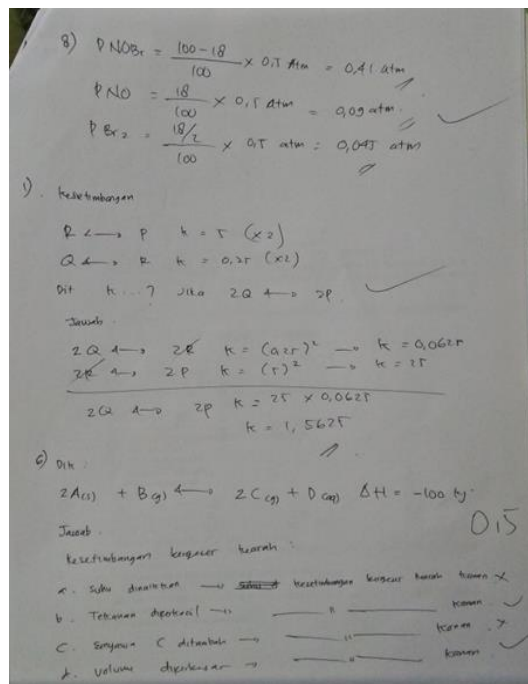 8) P NOBr = 100 - 18 / 100 × 0,5 Atm = 0,41 atm
P NO = 18 / 100 × 0,5 Atm = 0,09 atm.
P Br2 = 18/2 / 100 × 0,5 atm = 0,045 atm
1). Kesetimbangan
R ←→ P k = 5 (×2)
Q ←→ R k = 0,25 (×2)
Dit k...? Jika 2Q ←→ 2P.
Jawab
2Q ←→ 2R k = (0,25)² → k = 0,0625
2R ←→ 2P k = (5)² → k = 25
2Q ←→ 2P k = 25 × 0,0625
k = 1,5625
6) Dik :
2A(s) + B(g) ←→ 2C(g) + D(g) ΔH = -100 kj.
0,5
Jawab.
Kesetimbangan bergeser kearah :
a. Suhu dinaikkan → kesetimbangan bergeser kearah kanan ×
b. Tekanan diperkecil → ——— " ——— kanan
C. Senyawa C ditambah → ——— " ——— kanan ×
d. volume diperbesar → ——— " ——— kanan